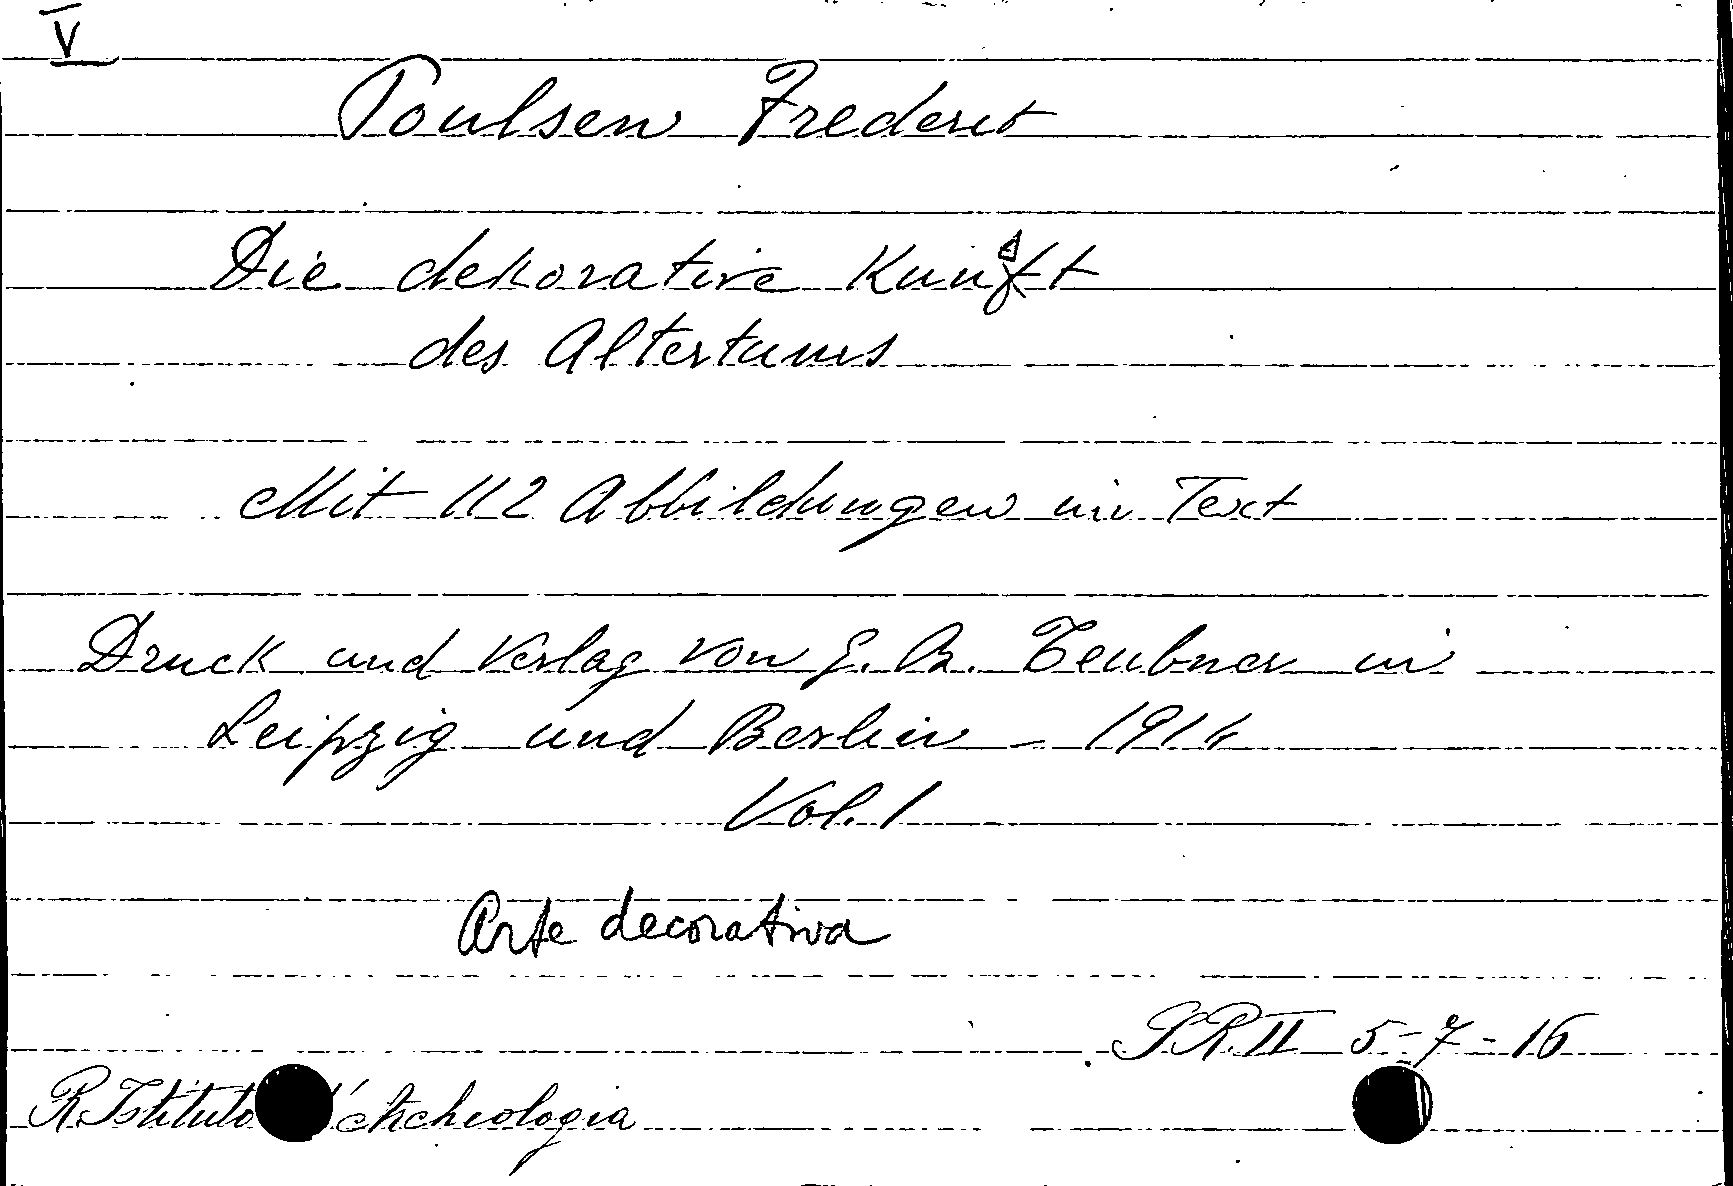 V
Poulsen Frederit
Die dekorative Kunst
des Altertums
Mit 112 Abbildungen in Text
Druck und Verlag von G. B. Teubner in
Leipzig und Berlin - 1914
Vol. 1
Arte decorativa
S.R. II 5-7-16
R. Istituto d'Archeologia